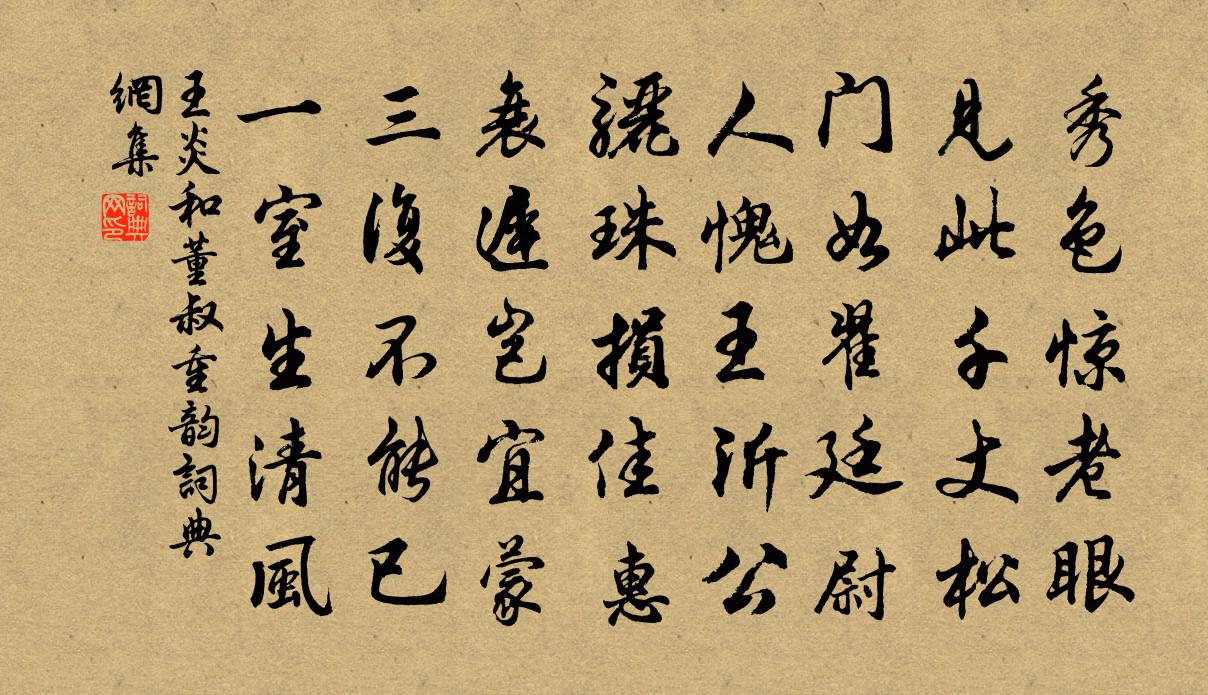 秀色惊老眼
见此千丈松
门如翟廷尉
人愧王沂公
骊珠損佳惠
衰遲岂宜蒙
三復不能已
一室生清風
王炎和董叔重韵詞典
網集
詞典网印